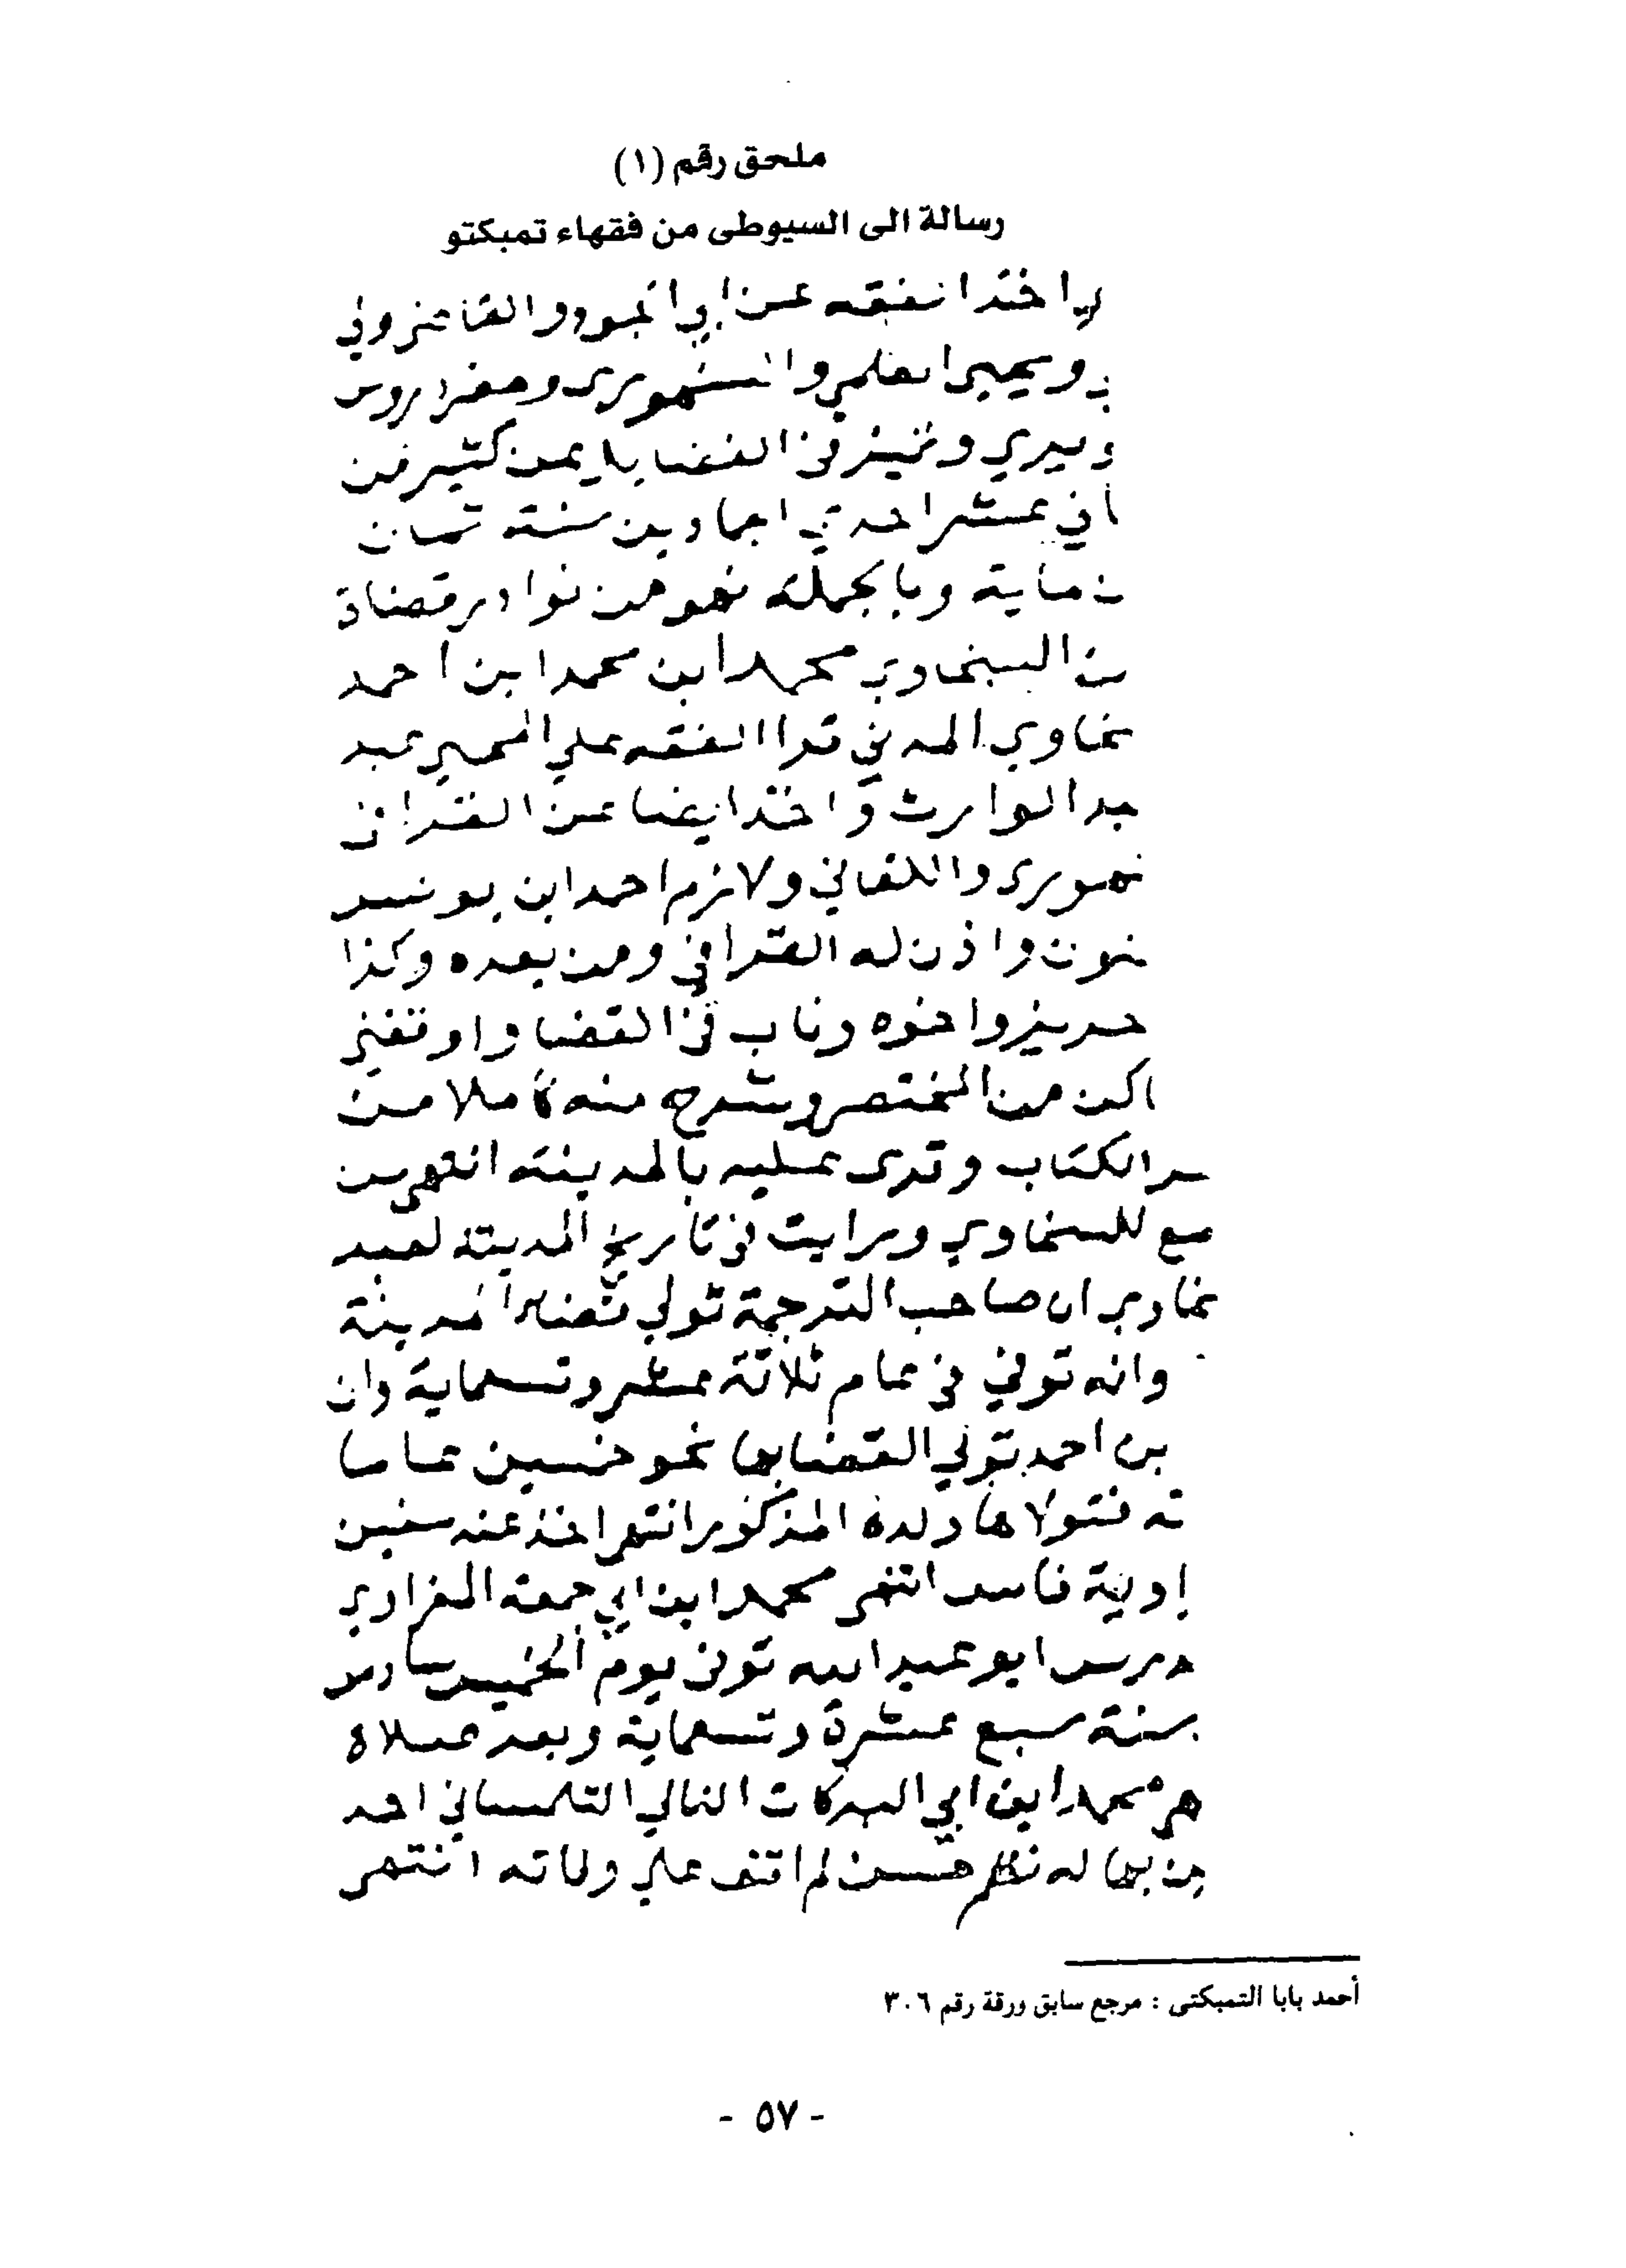 ملحق رقم (١)
رسالة الى السيوطى من فقهاء تمبكتو
اخذ الفقه عن ابي الجود و
ويحيى العلمي والسنهوري وحضر دروس
وتميز في الفضايل يمن كثير من
اني عشر احدي اجمادين سنة ثمان
ماية وبالجملة فهو من نوادر قضاة
السخاوي محمد ابن محمد ابن احمد
خاوي المدني قرا الفقه علي المحيي عبد
الوارث واخذ ايضا عن
نهوري واللقاني ولازم احمد ابن يونس
واذن له القرافي ومن بعده وكذا
واخوه وناب في القضا و
من المختصر وشرح منه كاملا من
الكتاب وقرى عليه بالمدينة انتهى من
للسخاوي ورايت في تاريخ المدينة لعبد
خاوي ان صاحب الترجمة تولي قضا المدينة
وانه توفي في عام ثلاثة عشر وتسعماية وان
بن احمد تولي القضا بها نحو خمسين عاما
ته فتولاها ولده المذكور انتهى اخذ عنه سنين
فاس انتهى محمد ابن ابي جمعة المغراوي
ابو عبد الله توفى يوم الخميس سادس
سنة سبع عشرة وتسعماية وبعد صلاة
محمد ابن ابي البركات النالي التلمساني احد
من بها له نظم حسن لم اقف علي وفاته انتهى
أحمد بابا التمبكتى : مرجع سابق ورقة رقم ٣٠٦
- ٥٧ -